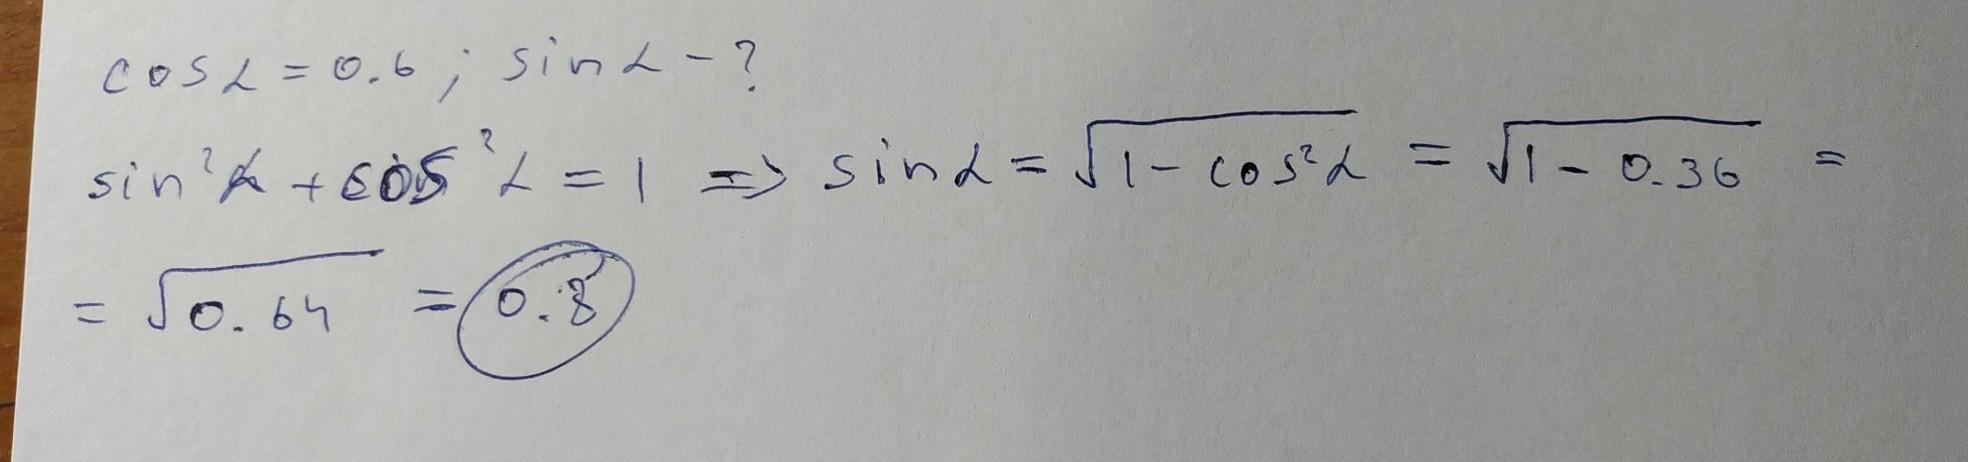 cos α = 0.6 ; sin α - ?
sin²α + cos²α = 1 => sin α = √1 - cos²α = √1 - 0.36 =
= √0.64 = 0.8